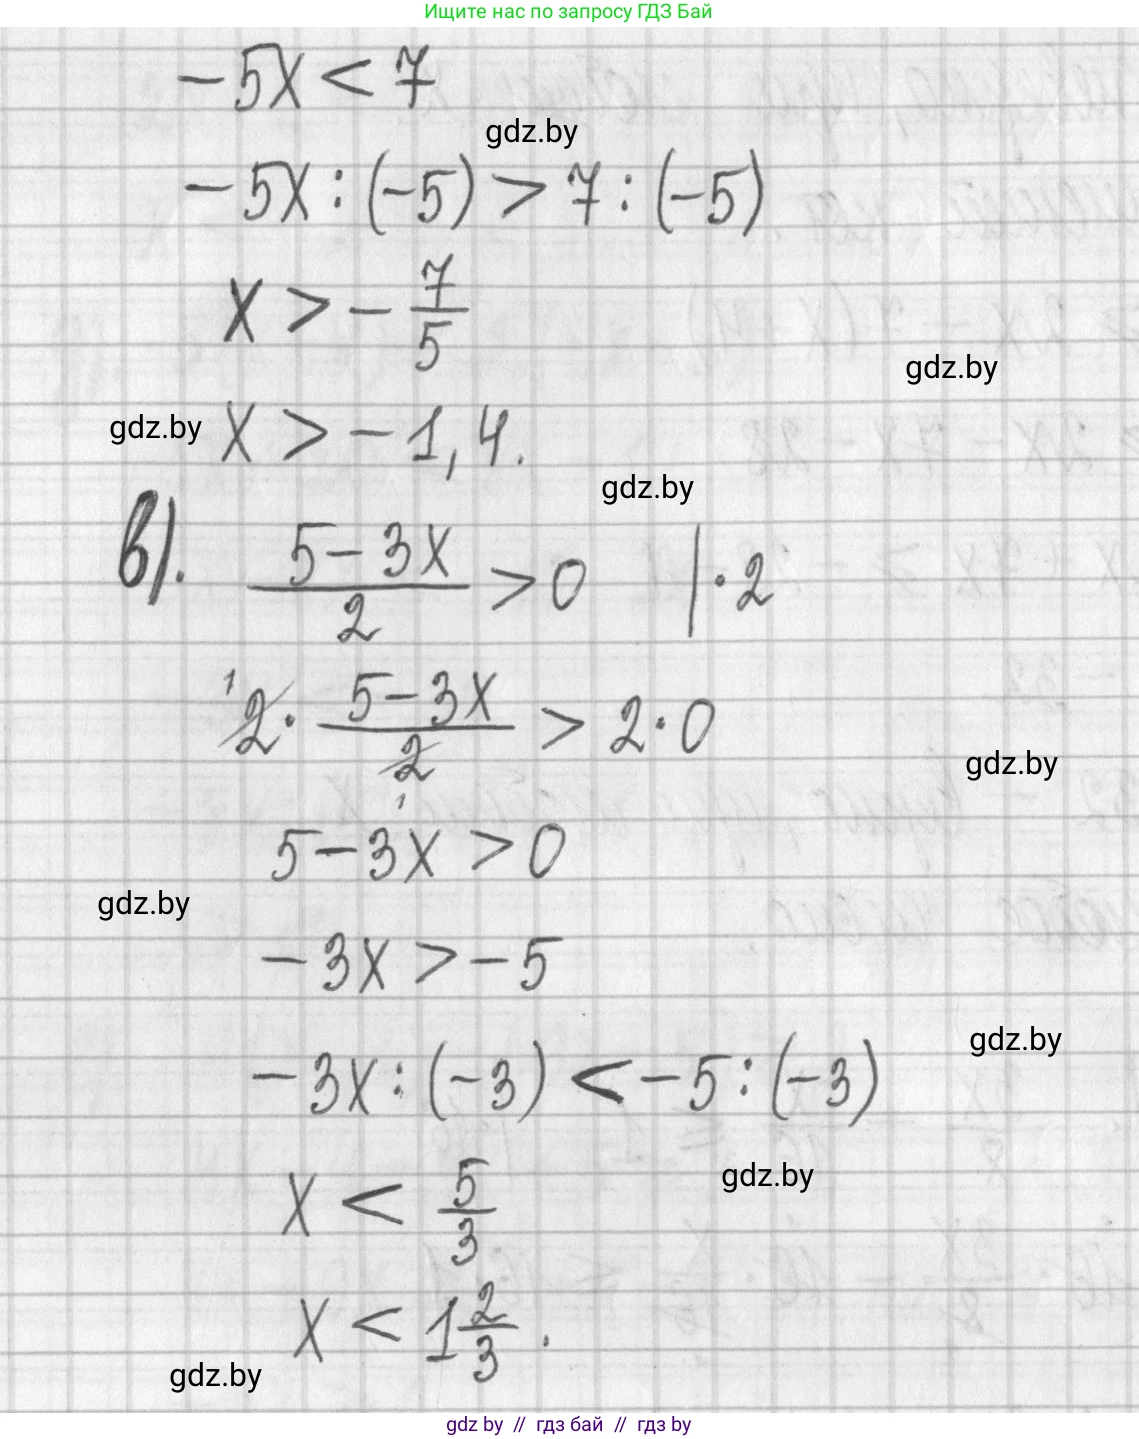 Ищите нас по запросу ГДЗ Бай
-5x < 7
gdz.by
-5x : (-5) > 7 : (-5)
x > - 7/5
gdz.by
gdz.by
x > -1,4.
gdz.by
в). (5-3x)/2 > 0 | · 2
¹2 · (5-3x)/2₁ > 2 · 0
gdz.by
5-3x > 0
gdz.by
-3x > -5
gdz.by
-3x : (-3) < -5 : (-3)
gdz.by
x < 5/3
x < 1 2/3.
gdz.by
gdz by // гдз бай // гдз by